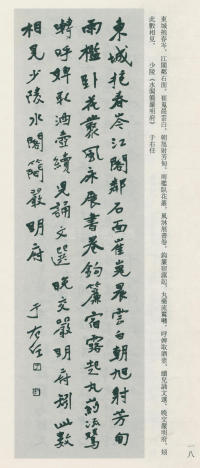 一八
東城抱春岑，江閣鄰石面。崔嵬晨雲白，朝旭射芳甸。雨檻臥花叢，風牀展書卷。鈎簾宿鷺起，丸藥流鶯囀。呼婢取酒壺，續兒誦文選。晚交嚴明府，矧
此數相見。　少陵《水閣簡嚴明府》　于右任
東城抱春岑江閣鄰石面崔嵬晨雲白朝旭射芳甸
雨檻卧花叢風床展書卷鈎簾宿鷺起丸藥流鶯
囀呼婢取酒壺續兒誦文選晚交嚴明府矧此數
相見少陵水閣簡嚴明府
于右任